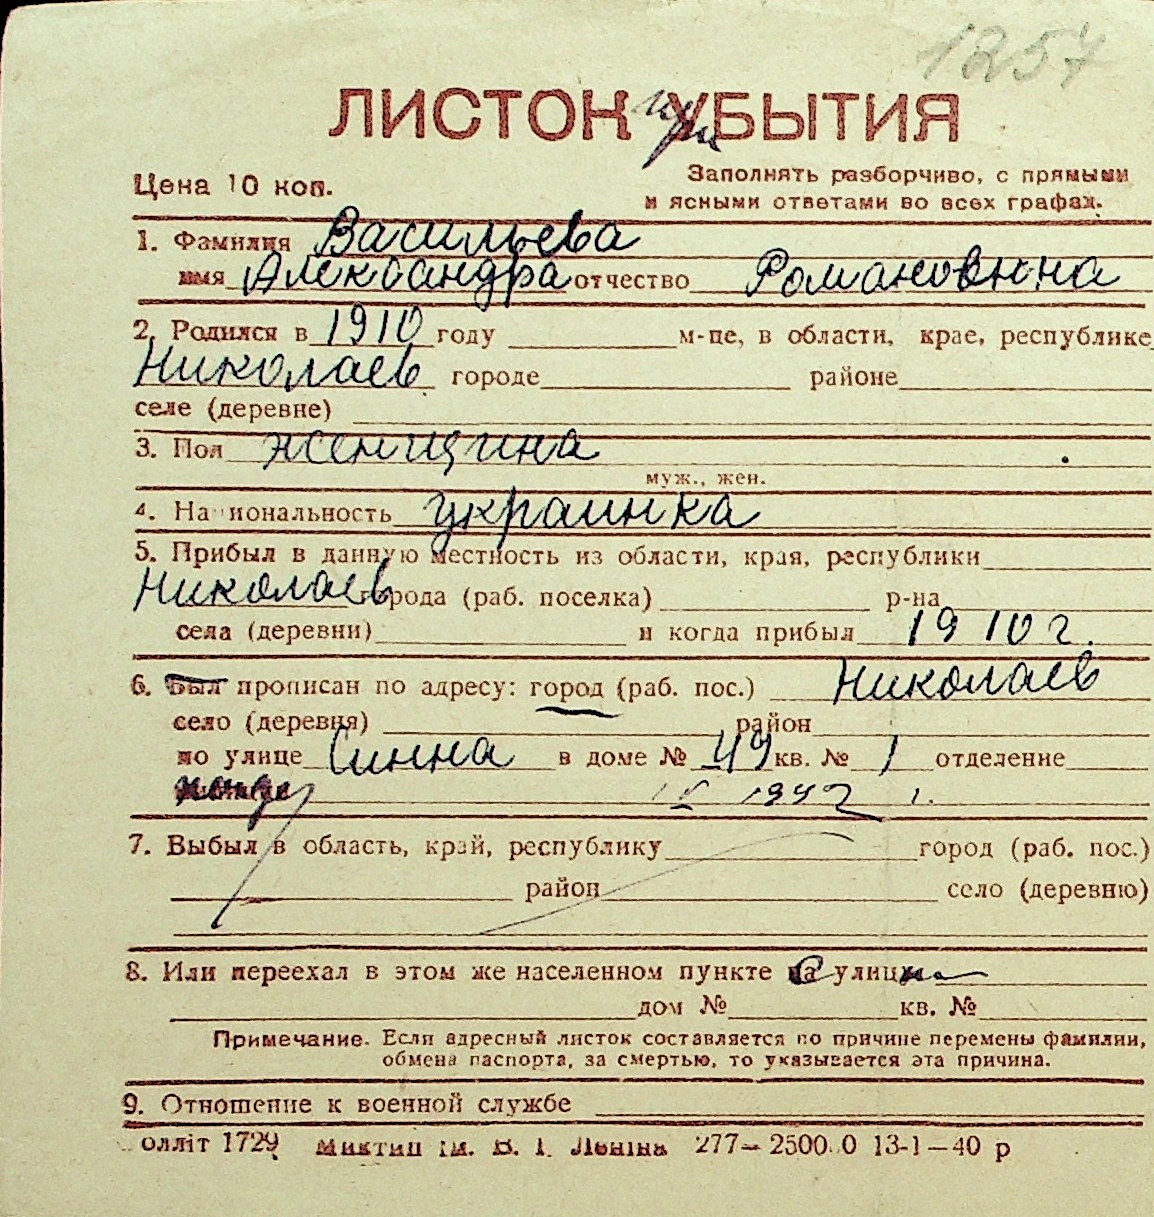 1257
ЛИСТОК при УБЫТИЯ
Цена 10 коп.
Заполнять разборчиво, с прямыми
и ясными ответами во всех графах.
1. Фамилия Васильева
имя Александра отчество Романовнна
2. Родился в 1910 году м-це, в области, крае, республике
Николаев городе районе
селе (деревне)
3. Пол женщина
муж., жен.
4. Национальность украинка
5. Прибыл в данную местность из области, края, республики
Николаев города (раб. поселка) р-на
села (деревни) и когда прибыл 1910 г.
6. Был прописан по адресу: город (раб. пос.) Николаев
село (деревня) район
по улице Синна в доме № 49 кв. № 1 отделение
1942
7. Выбыл в область, край, республику город (раб. пос.)
район село (деревню)
8. Или переехал в этом же населенном пункте с улицы
дом № кв. №
Примечание. Если адресный листок составляется по причине перемены фамилии,
обмена паспорта, за смертью, то указывается эта причина.
9. Отношение к военной службе
олліт 1729 ім. В. І. Леніна 277— 2500.0 13-1—40 р